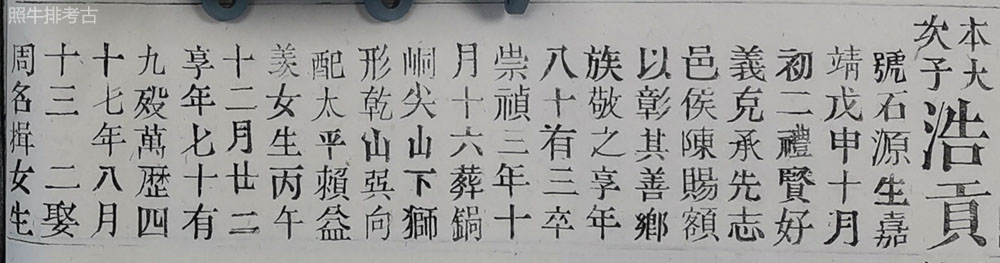 照牛排考古
本大
次子
浩貢
號石源生嘉
靖戊申十月
初二禮賢好
義克承先志
邑侯陳賜額
以彰其善鄉
族敬之享年
八十有三卒
崇禎三年十
月十六葬鍋
峒尖山下獅
形乾山巽向
配太平賴益
羨女生丙午
十二月廿二
享年七十有
九殁萬歷四
十七年八月
十三 二娶
周名揖女生